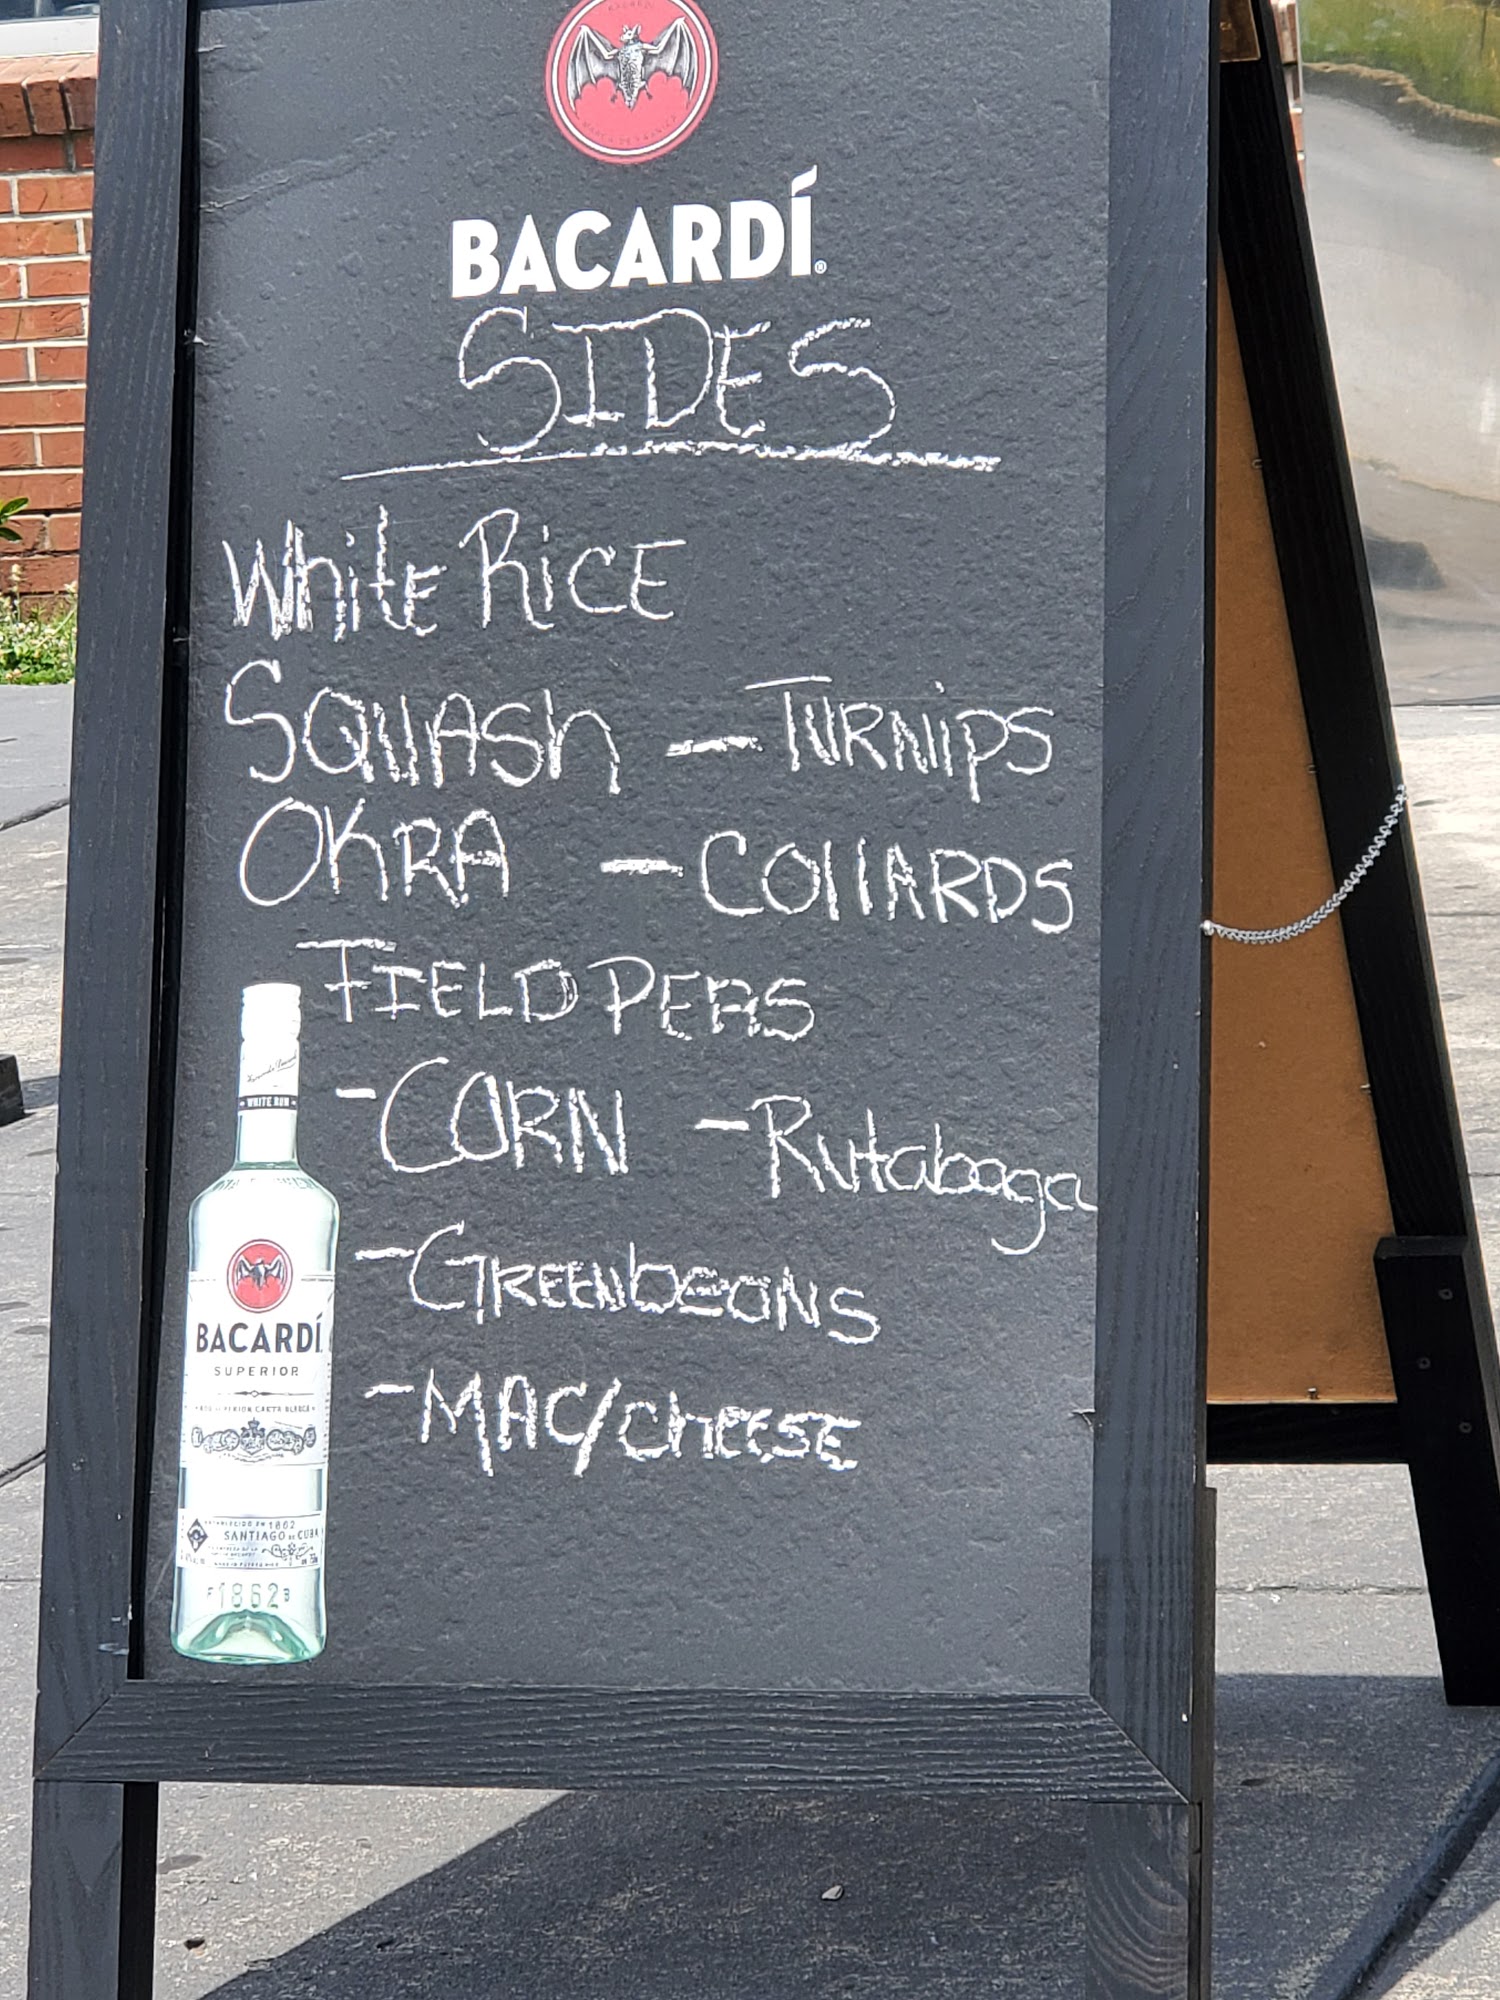 BACARDÍ®
SIDES
White RICE
SQUASh - TURNiPS
OKRA - COllARDS
FIELD PEAS
- CORN - Rutabaga
- GREENbeans
- MAC/cheese
WHITE RUM
BACARDÍ
SUPERIOR
1862
SANTIAGO DE CUBA
1862